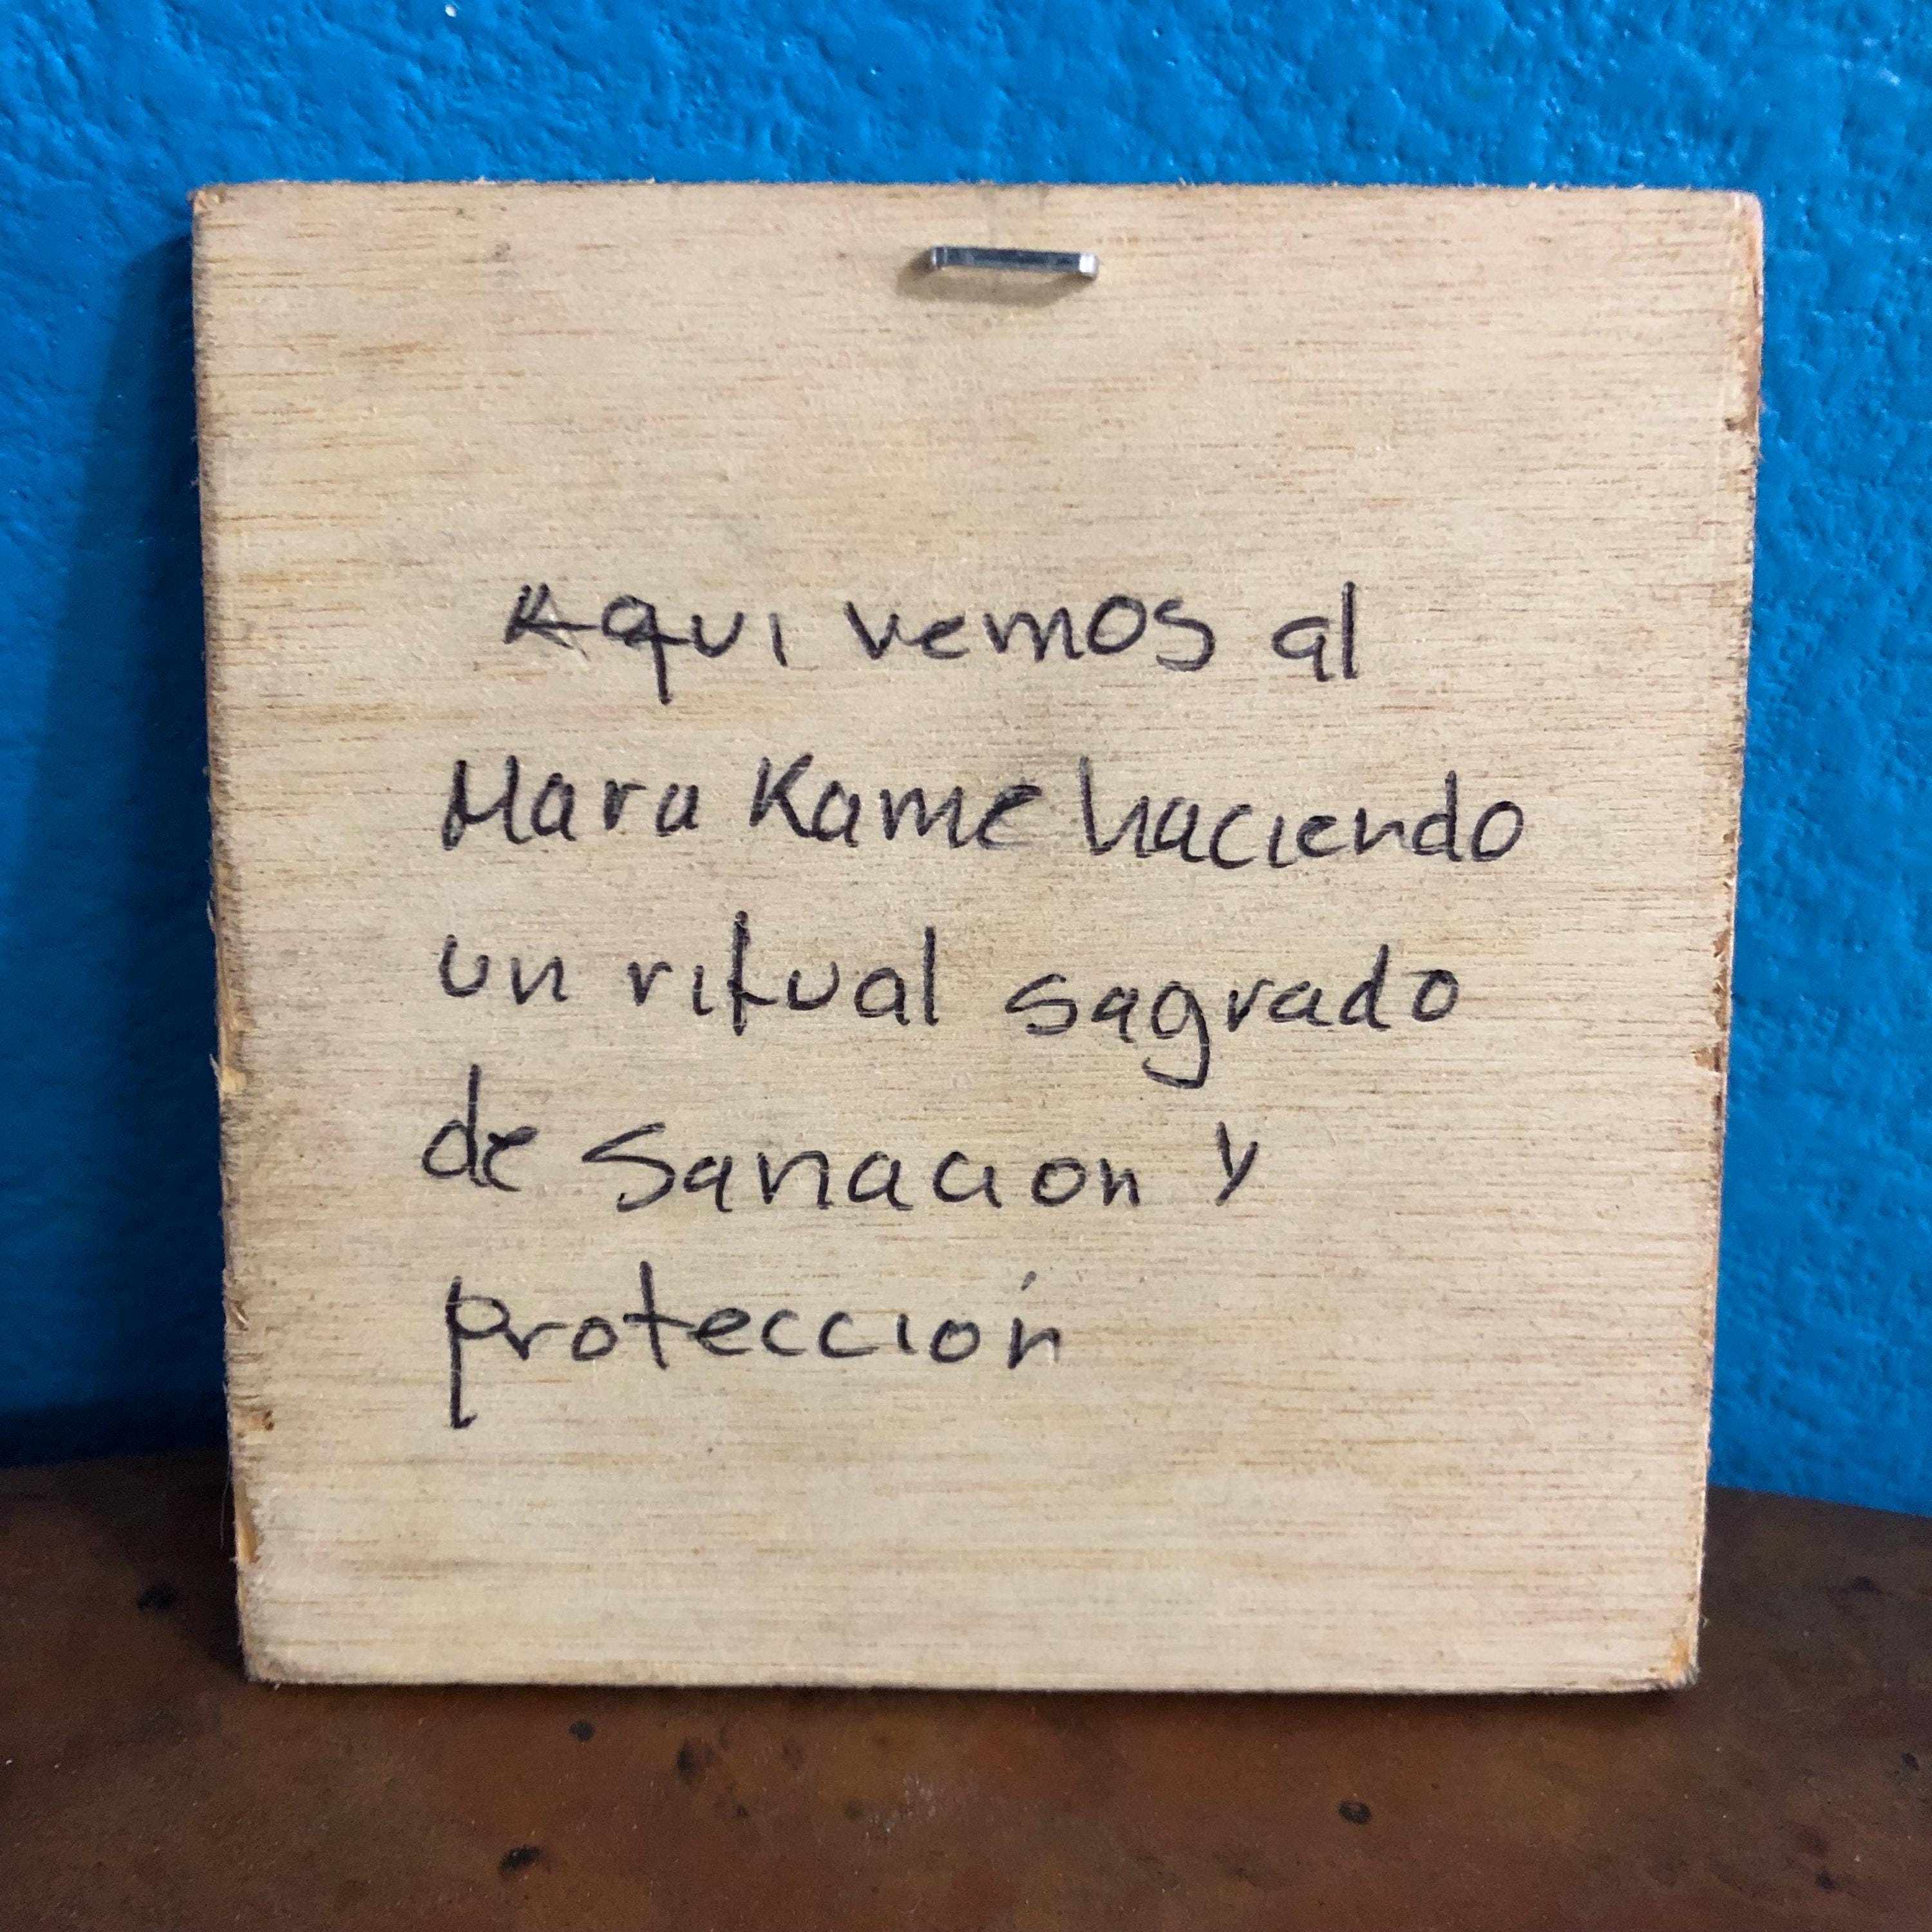 Aqui vemos al
Mara Kame haciendo
un ritual sagrado
de Sanacion y
protección